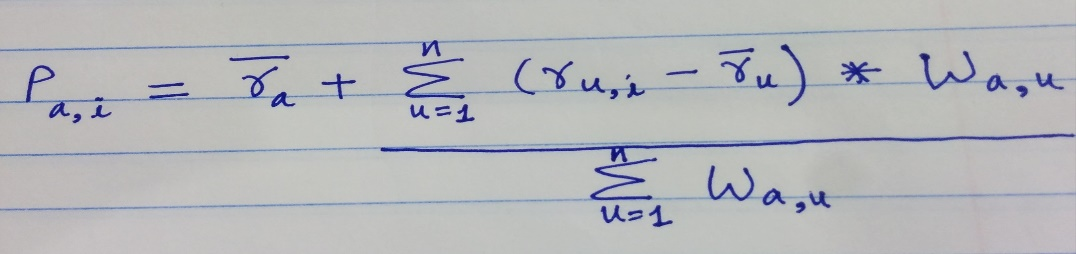 P_{a,i} = \overline{r}_a + \frac{\sum_{u=1}^{n} (r_{u,i} - \overline{r}_u) * W_{a,u}}{\sum_{u=1}^{n} W_{a,u}}